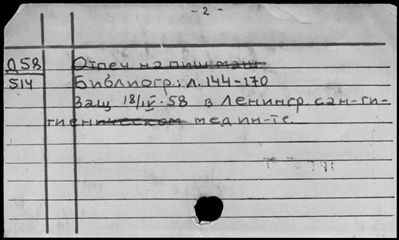 - 2 -
Д58 Отпеч на пиш маш.
514 Библиогр.: л. 144-170
Защ 18/IV-58 в Ленингр. сан-ги-
гиеническом мед ин-те.